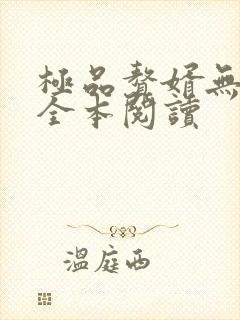 極品贅婿無
全本閱讀
溫庭西